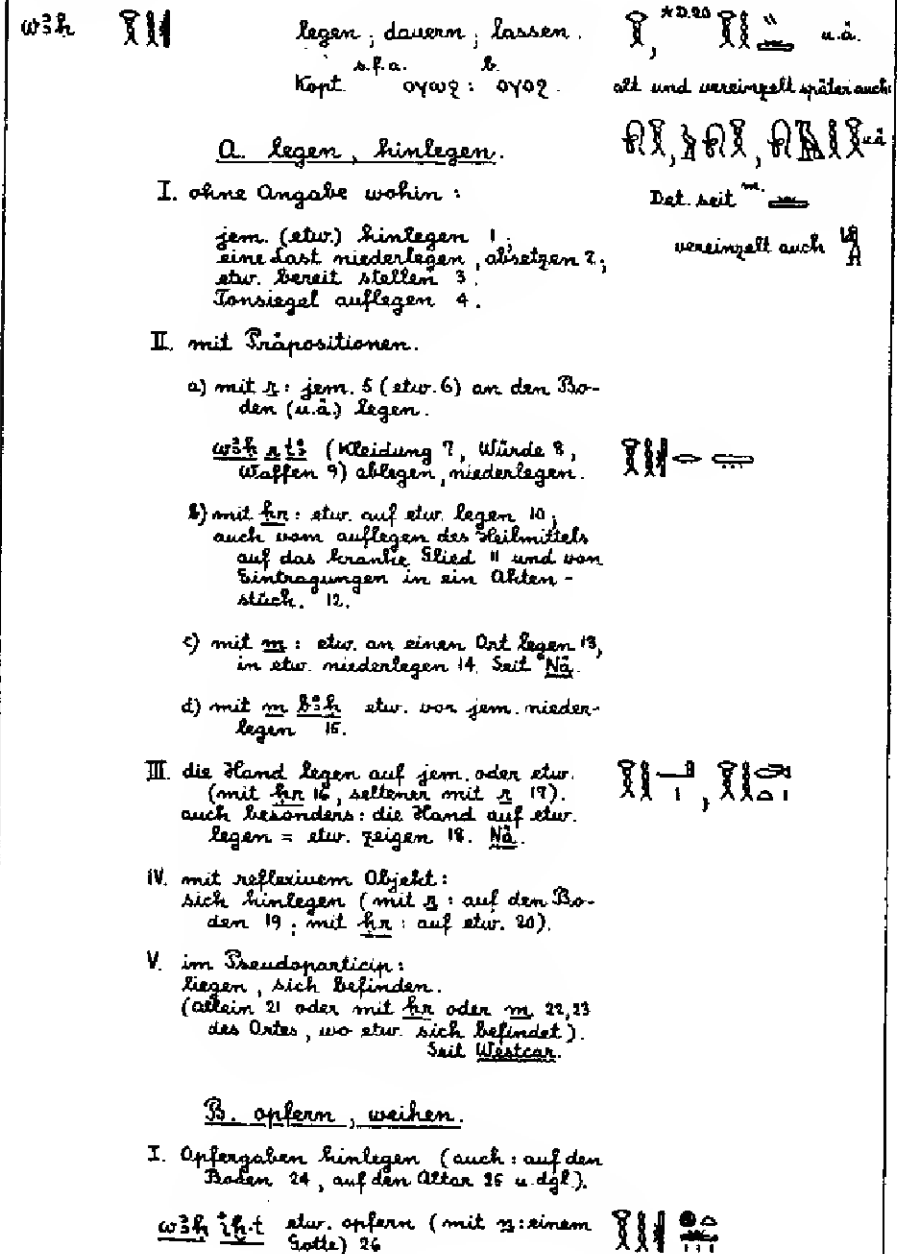 wꜣḥ 𓎝𓎛 legen ; dauern ; lassen.
* D.20 u.ä.
s.f.a. b.
Kopt. ⲟⲩⲱϩ : ⲟⲩⲟϩ.
alt und vereinzelt später auch:
u.ä
A. legen, hinlegen.
I. ohne Angabe wohin :
Det. seit m.
jem. (etw.) hinlegen 1 ;
vereinzelt auch
eine Last niederlegen, absetzen 2;
etw. bereit stellen 3.
Tonsiegel auflegen 4.
II. mit Präpositionen.
a) mit r : jem. 5 (etw. 6) an den Bo-
den (u.ä.) legen.
wꜣḥ r tꜣ (Kleidung 7, Würde 8,
Waffen 9) ablegen, niederlegen.
b) mit ḥr : etw. auf etw. legen 10;
auch vom auflegen des Heilmittels
auf das kranke Glied 11 und von
Eintragungen in ein Akten-
stück. 12.
c) mit m : etw. an einen Ort legen 13,
in etw. niederlegen 14. Seit Nä.
d) mit m bꜣḥ etw. vor jem. nieder-
legen 15.
III. die Hand legen auf jem. oder etw.
(mit ḥr 16, seltener mit r 17).
auch besonders: die Hand auf etw.
legen = etw. zeigen 18. Nä.
IV. mit reflexivem Objekt :
sich hinlegen (mit r : auf den Bo-
den 19 ; mit ḥr : auf etw. 20).
V. im Pseudoparticip :
liegen, sich befinden.
(allein 21 oder mit ḥr oder m 22,23
des Ortes, wo etw. sich befindet).
Seit Westcar.
B. opfern, weihen.
I. Opfergaben hinlegen (auch : auf den
Boden 24, auf den Altar 25 u. dgl).
wꜣḥ iḫ.t etw. opfern (mit n : einem
Gotte) 26